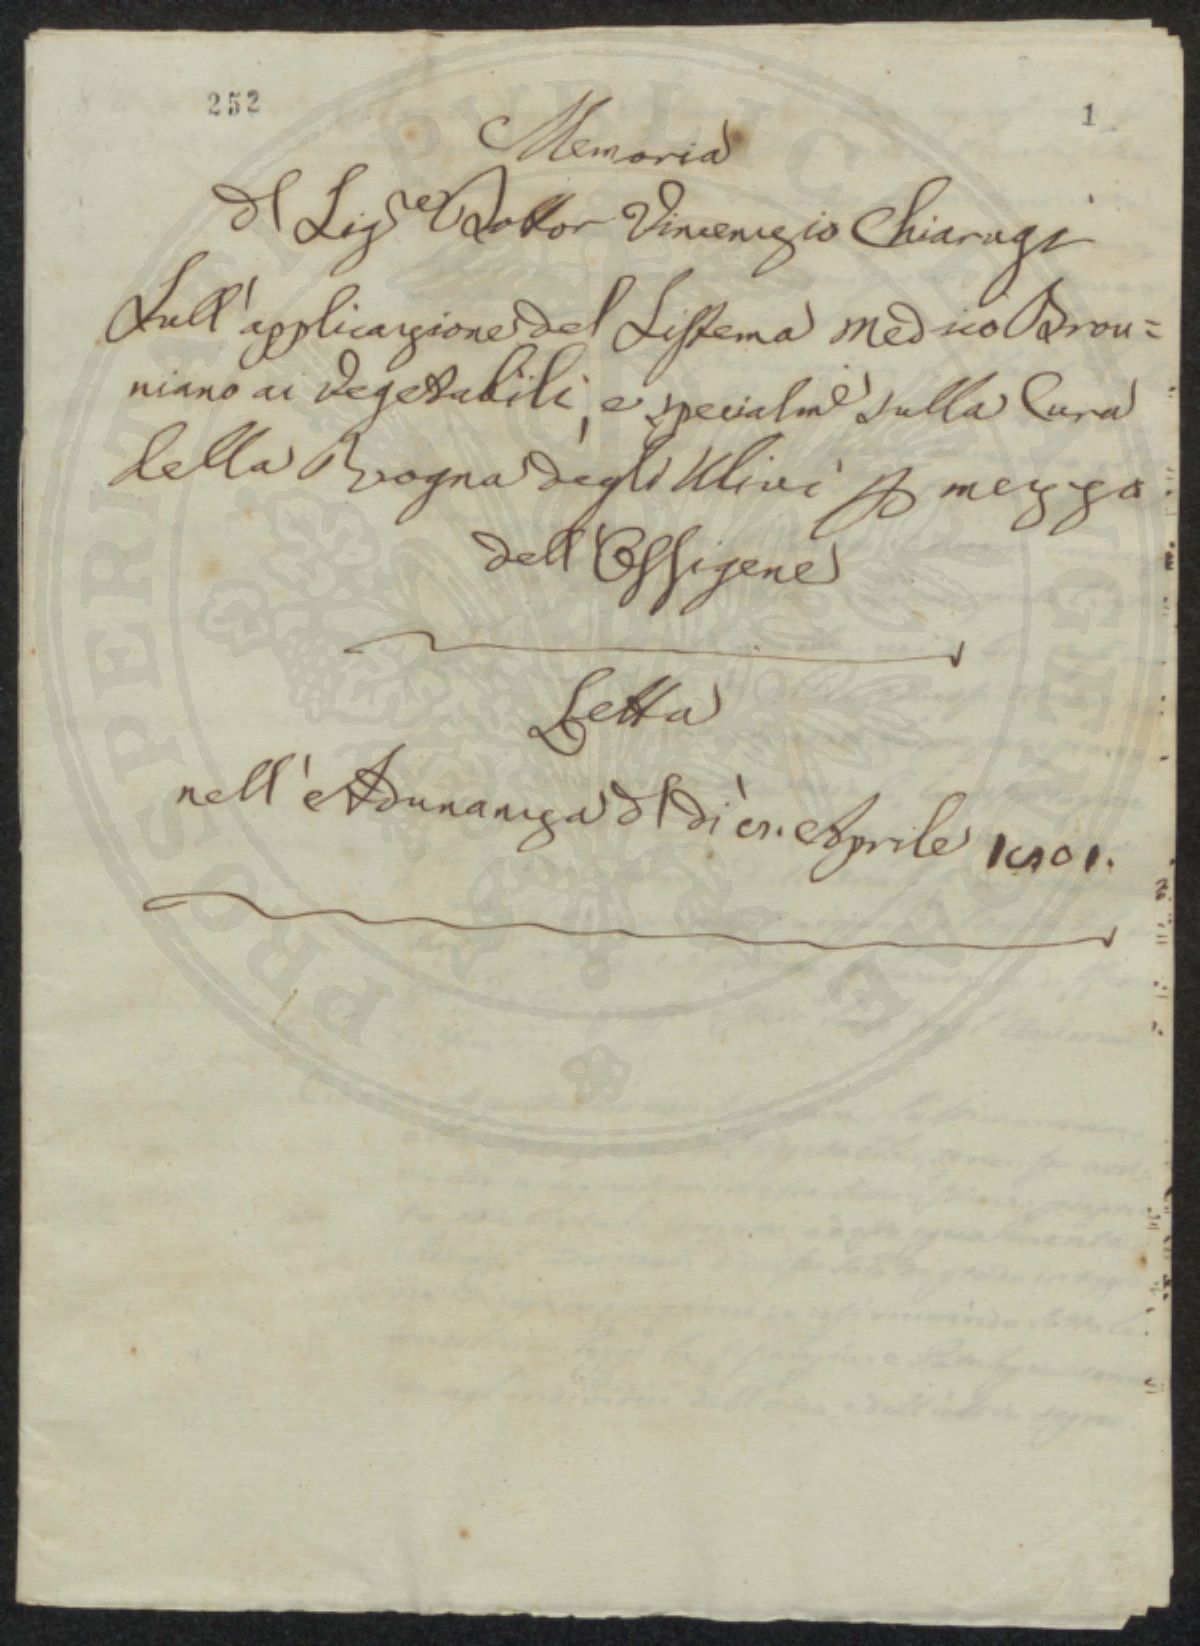 252
1
Memoria
Del Sig.re Dottor Vincenzio Chiarugi
Sull'applicazione del Sistema medico Brou=
niano ai Vegetabili, e specialm.e sulla Cura
della Rogna degli Ulivi p mezzo
dell'Ossigene
Letta
nell'Adunanza del dì Aprile 1801.
PROSPERITATI PUBLICAE AUGENDAE